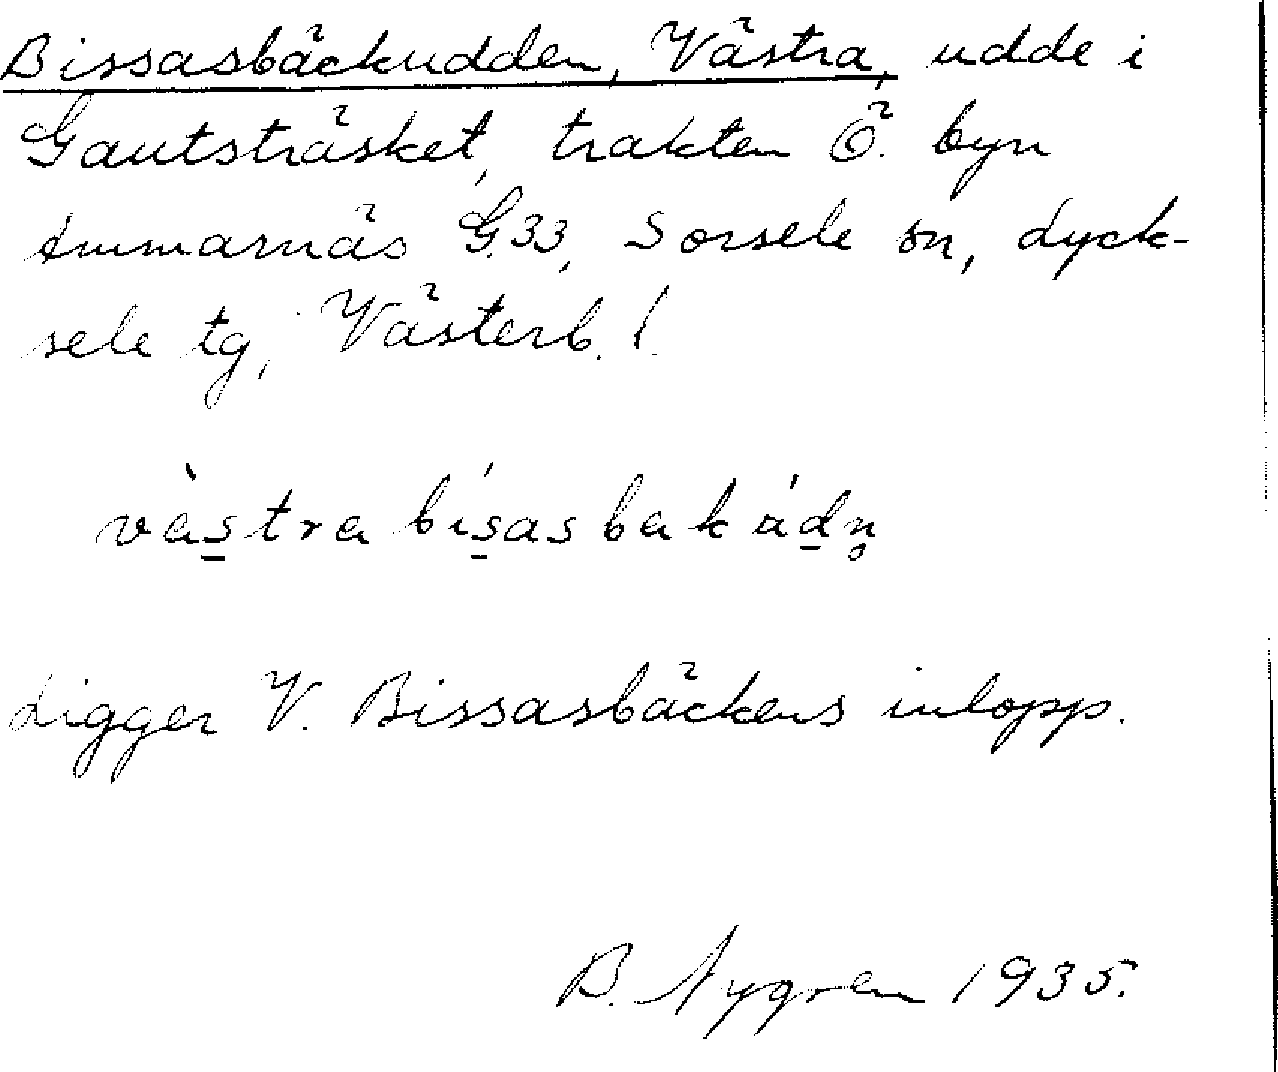 Bissasbäckudden, Västra, udde i
Gautsträsket, trakten Ö. byn
Ammarnäs G.33, Sorsele sn, Lyck-
sele tg, Västerb. l.
västra bísasbakúdn̥
Ligger V. Bissasbäckens inlopp.
B. Nygren 1935.